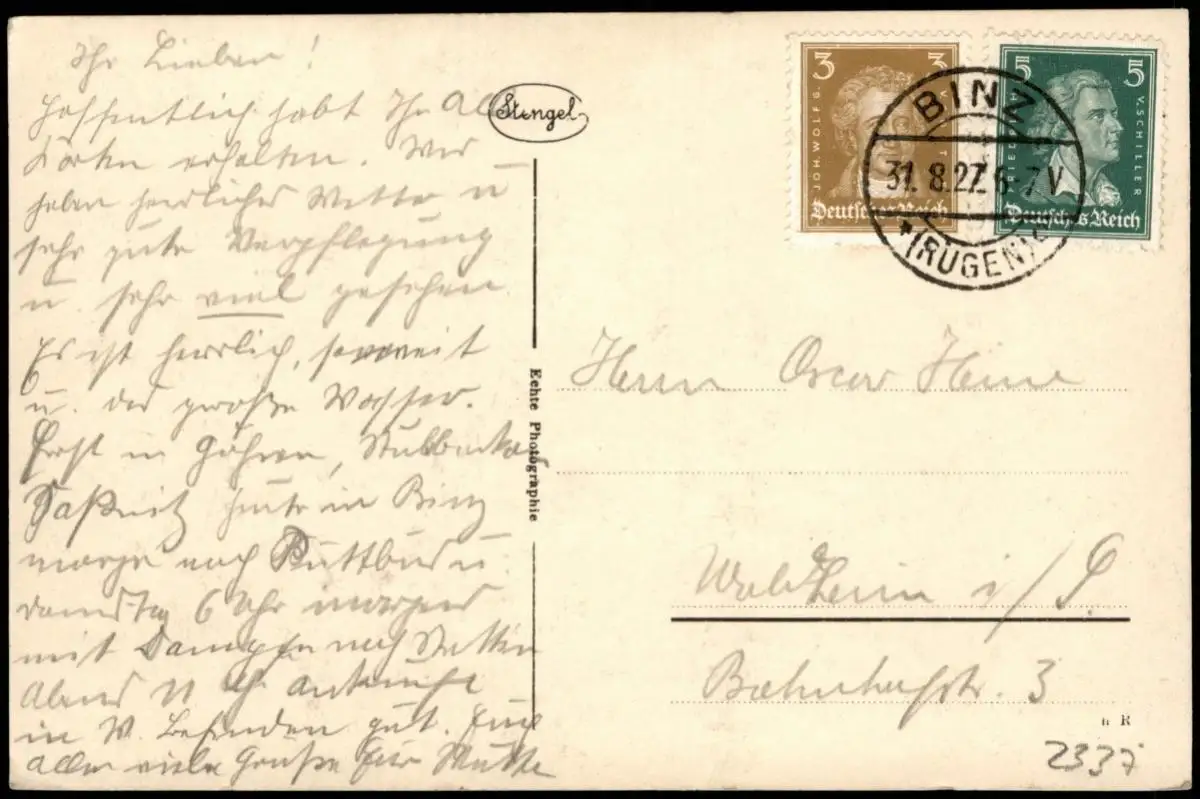 Ihr Lieben!
Hoffentlich habt Ihr Alle
Karten erhalten. Wir
haben herrliches Wetter u
sehr gute Verpflegung
u. sehr viel gesehen
Es ist herrlich, soweit
u. das große Wasser.
Erst in Göhren, Stubbenkam
Saßnitz heute in Binz
morgen nach Puttbus u.
Samstag 6 Uhr morgens
mit Dampfer nach Stettin
Abend 11 Uhr Ankunft
in W. Befinden gut. Euch
allen viele Grüße
Stengel
Echte Photographie
3 3
JOH. WOLFG. V.
Deutsches Reich
5 5
FRIED. V. SCHILLER
Deutsches Reich
BINZ
31. 8.27. 6-7 V
* (RÜGEN)
Herrn Oscar Heine
Waldheim i/S.
Bahnhofstr. 3
R
2337